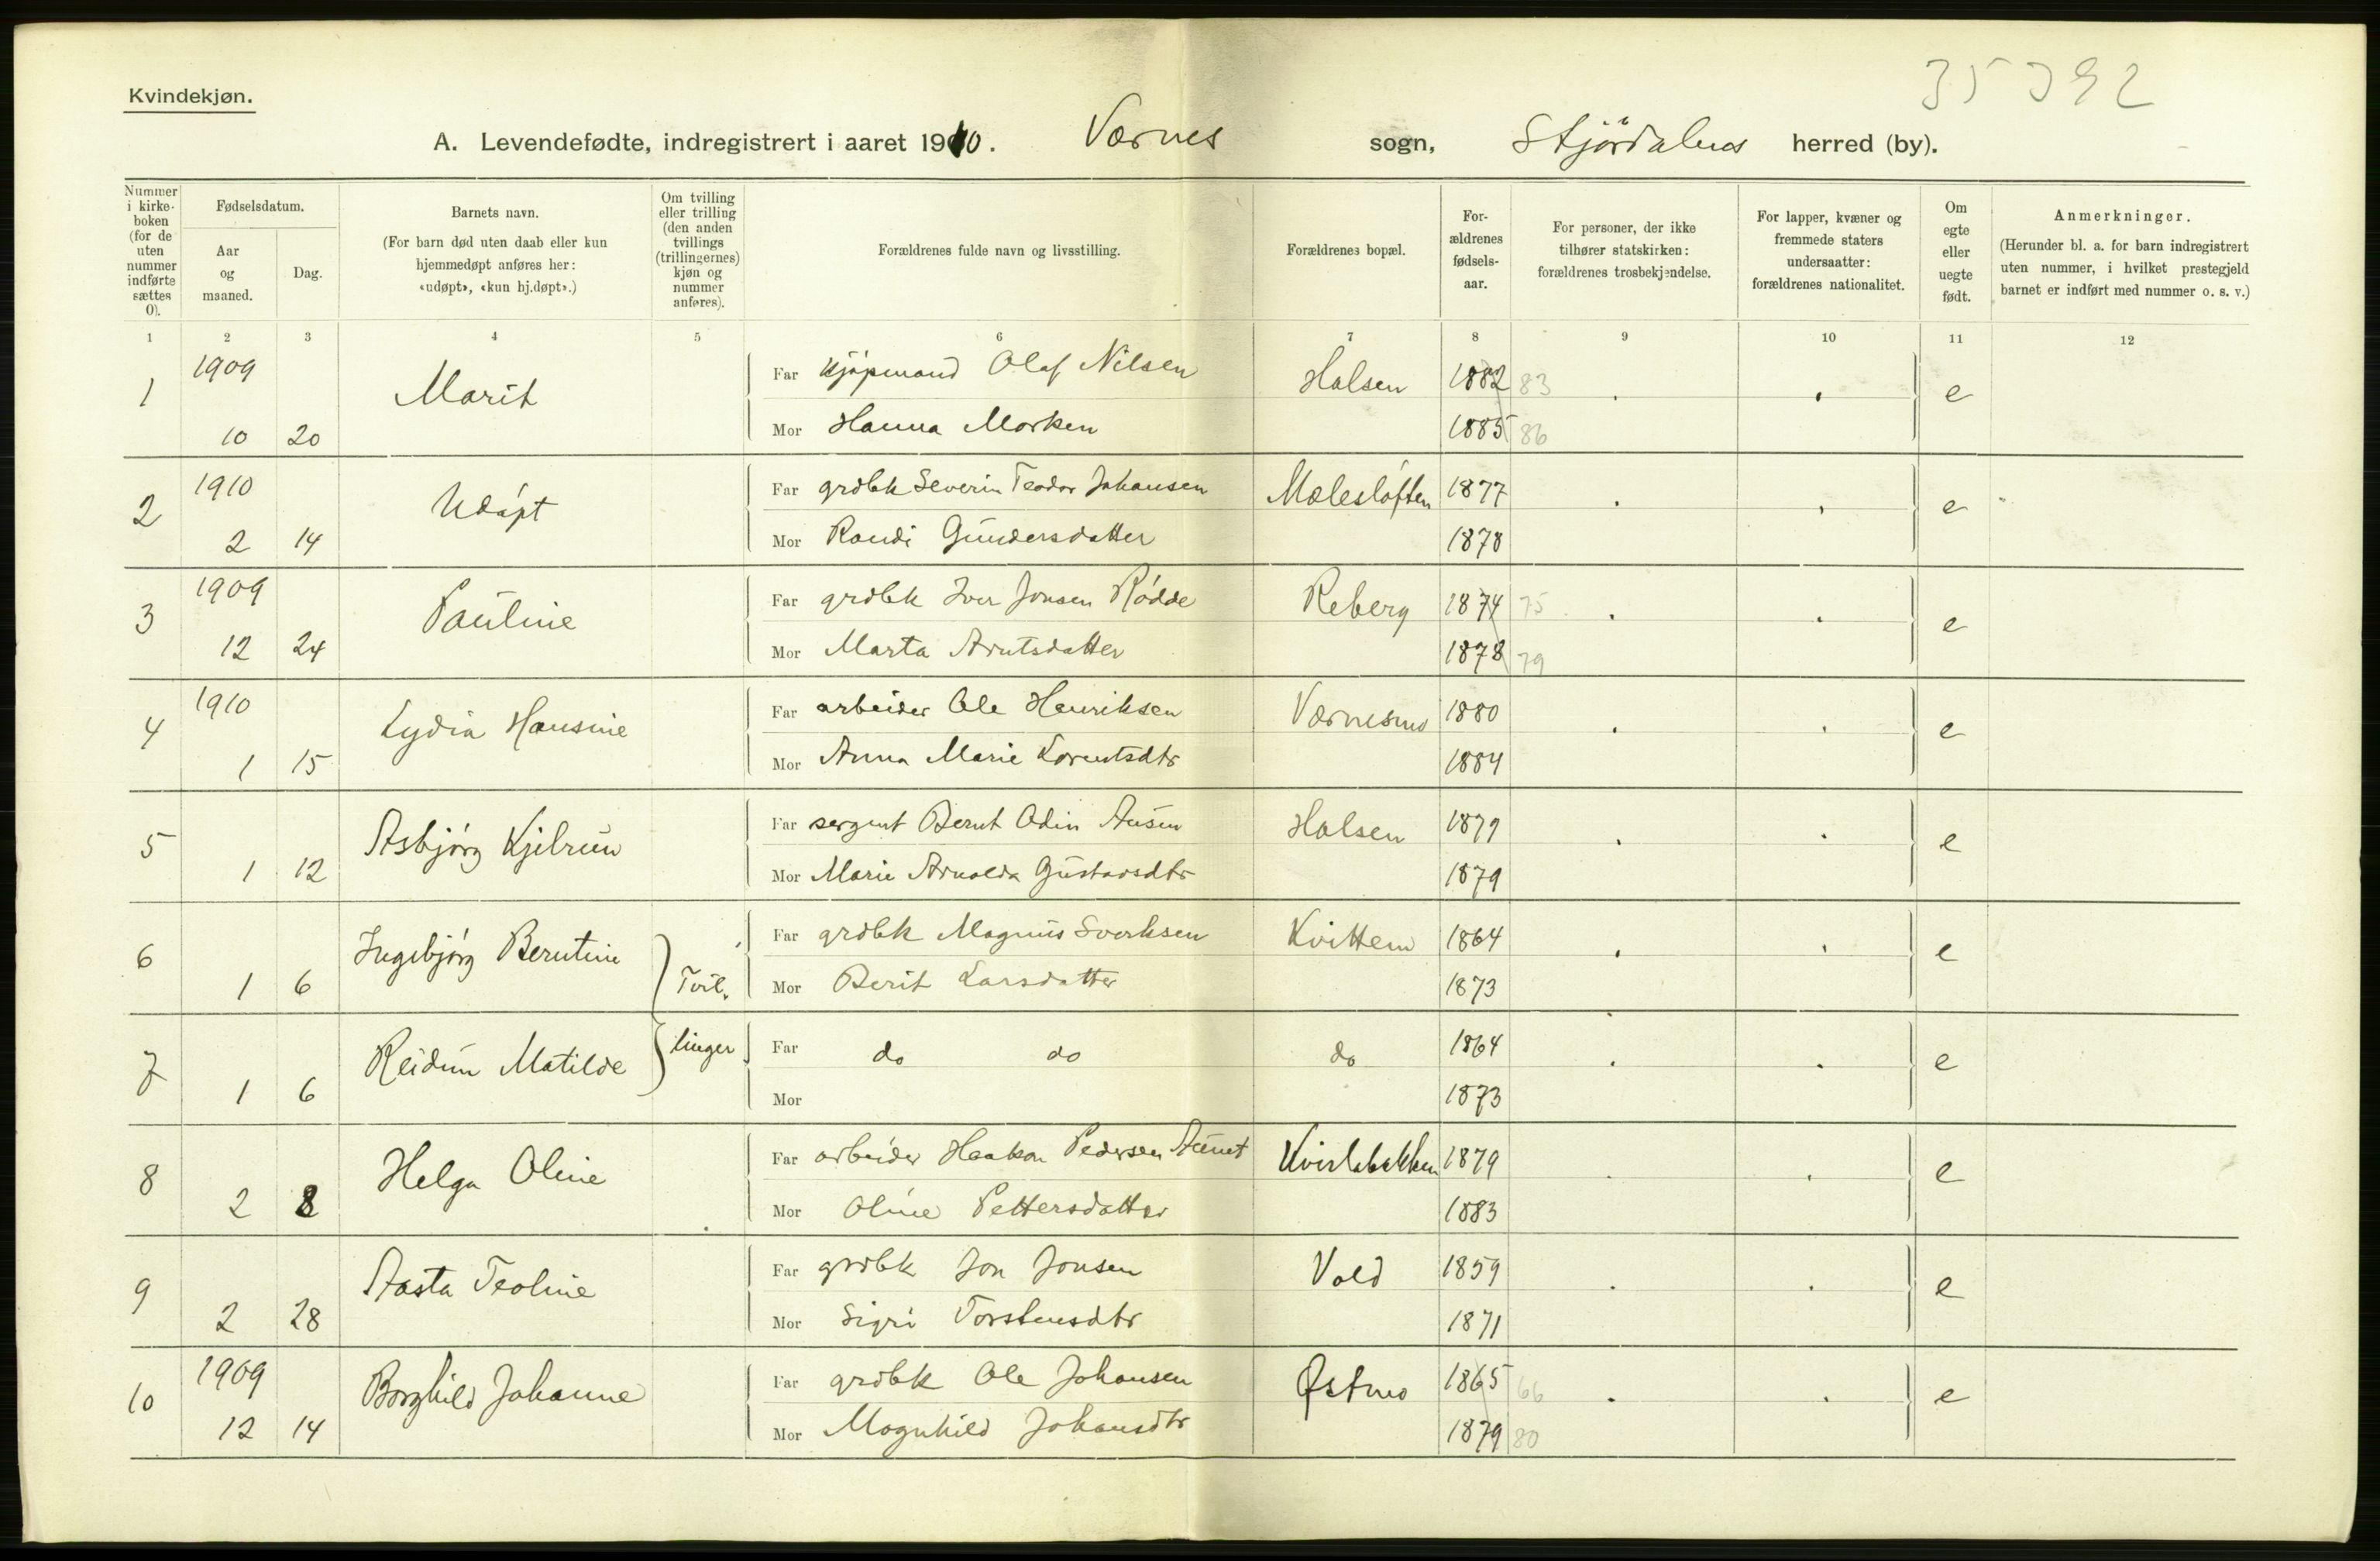 35392
Kvindekjøn.
A. Levendefødte, indregistrert i aaret 1910. Værnes sogn, Stjørdalens herred (by).
Nummer i kirkeboken (for de uten nummer indførte sættes 0).
Fødselsdatum.
Aar og maaned.
Dag.
Barnets navn.
(For barn død uten daab eller kun hjemmedøpt anføres her: «udøpt», «kun hj.døpt».)
Om tvilling eller trilling (den anden tvillings (trillingernes) kjøn og nummer anføres).
Forældrenes fulde navn og livsstilling.
Forældrenes bopæl.
Forældrenes fødselsaar.
For personer, der ikke tilhører statskirken: forældrenes trosbekjendelse.
For lapper, kvæner og fremmede staters undersaatter: forældrenes nationalitet.
Om egte eller uegte født.
Anmerkninger.
(Herunder bl. a. for barn indregistrert uten nummer, i hvilket prestegjeld barnet er indført med nummer o. s. v.)
1 2 3 4 5 6 7 8 9 10 11 12
1 1909 Marit Far Kjøpmand Olaf Nilsen Halsen 1882 83 e
10 20 Mor Hanna Morken 1885 86
2 1910 Udøpt Far grdbk Severin Teodor Johansen Mælesløften 1877 e
2 14 Mor Randi Gundersdatter 1878
3 1909 Pauline Far grdbk Iver Jonsen Rødde Reberg 1874 75 e
12 24 Mor Marta Arntsdatter 1878 79
4 1910 Lydia Hansine Far arbeider Ole Henriksen Værnesmo 1880 e
1 15 Mor Anna Marie Lorentsdtr 1884
5 Asbjørg Kjelrun Far sergent Bernt Odin Ausen Halsen 1879 e
1 12 Mor Marie Arnolda Gustavsdtr 1879
6 Ingebjørg Berntine Far grdbk Magnus Sverksen Kvittem 1864 e
1 6 Tvil- Mor Berit Larsdatter 1873
7 Reidun Matilde linger Far do do do 1864 e
1 6 Mor 1873
8 Helga Oline Far arbeider Haakon Pedersen Aunet Kvislabakken 1879 e
2 8 Mor Oline Pettersdatter 1883
9 Aasta Teoline Far grdbk Jon Jonsen Vold 1859 e
2 28 Mor Sigri Torstensdtr 1871
10 1909 Borghild Johanne Far grdbk Ole Johansen Østmo 1865 66 e
12 14 Mor Magnhild Johansdtr 1879 80